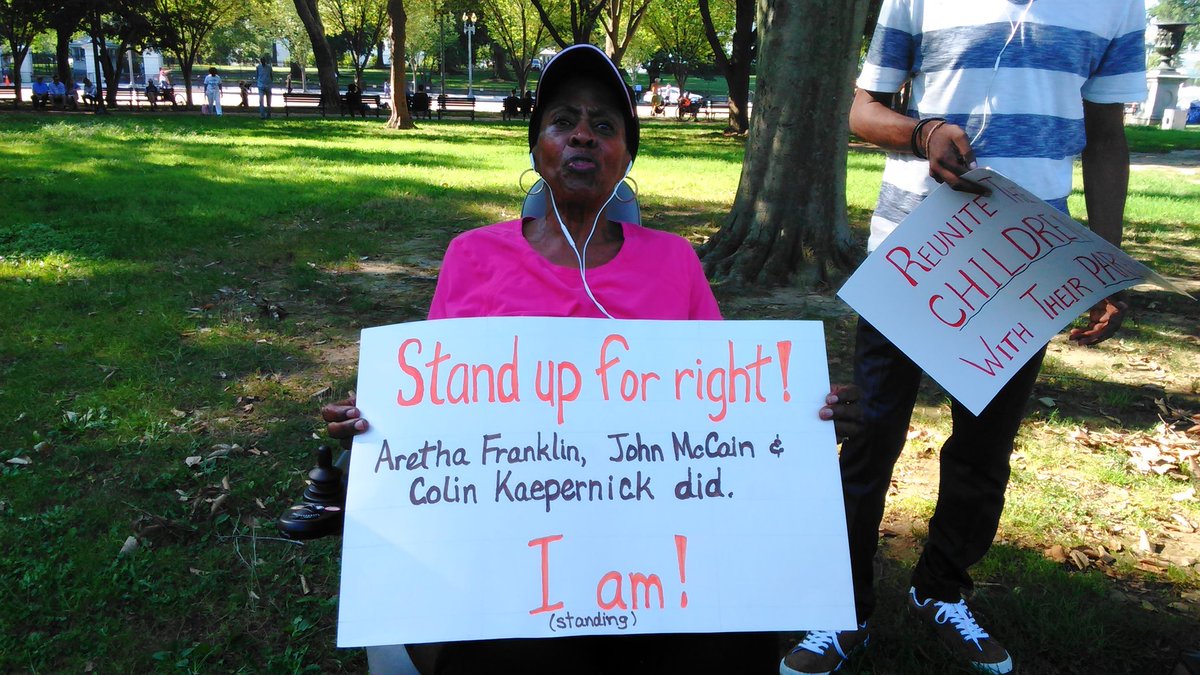 Stand up for right!
Aretha Franklin, John McCain &
Colin Kaepernick did.
I am!
(standing)
REUNITE
CHILDREN
WITH THEIR